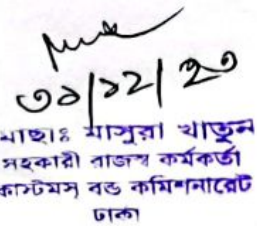 ৩১/১২/২৩
মাছাঃ মাসুরা খাতুন
সহকারী রাজস্ব কর্মকর্তা
কাস্টমস বন্ড কমিশনারেট
ঢাকা